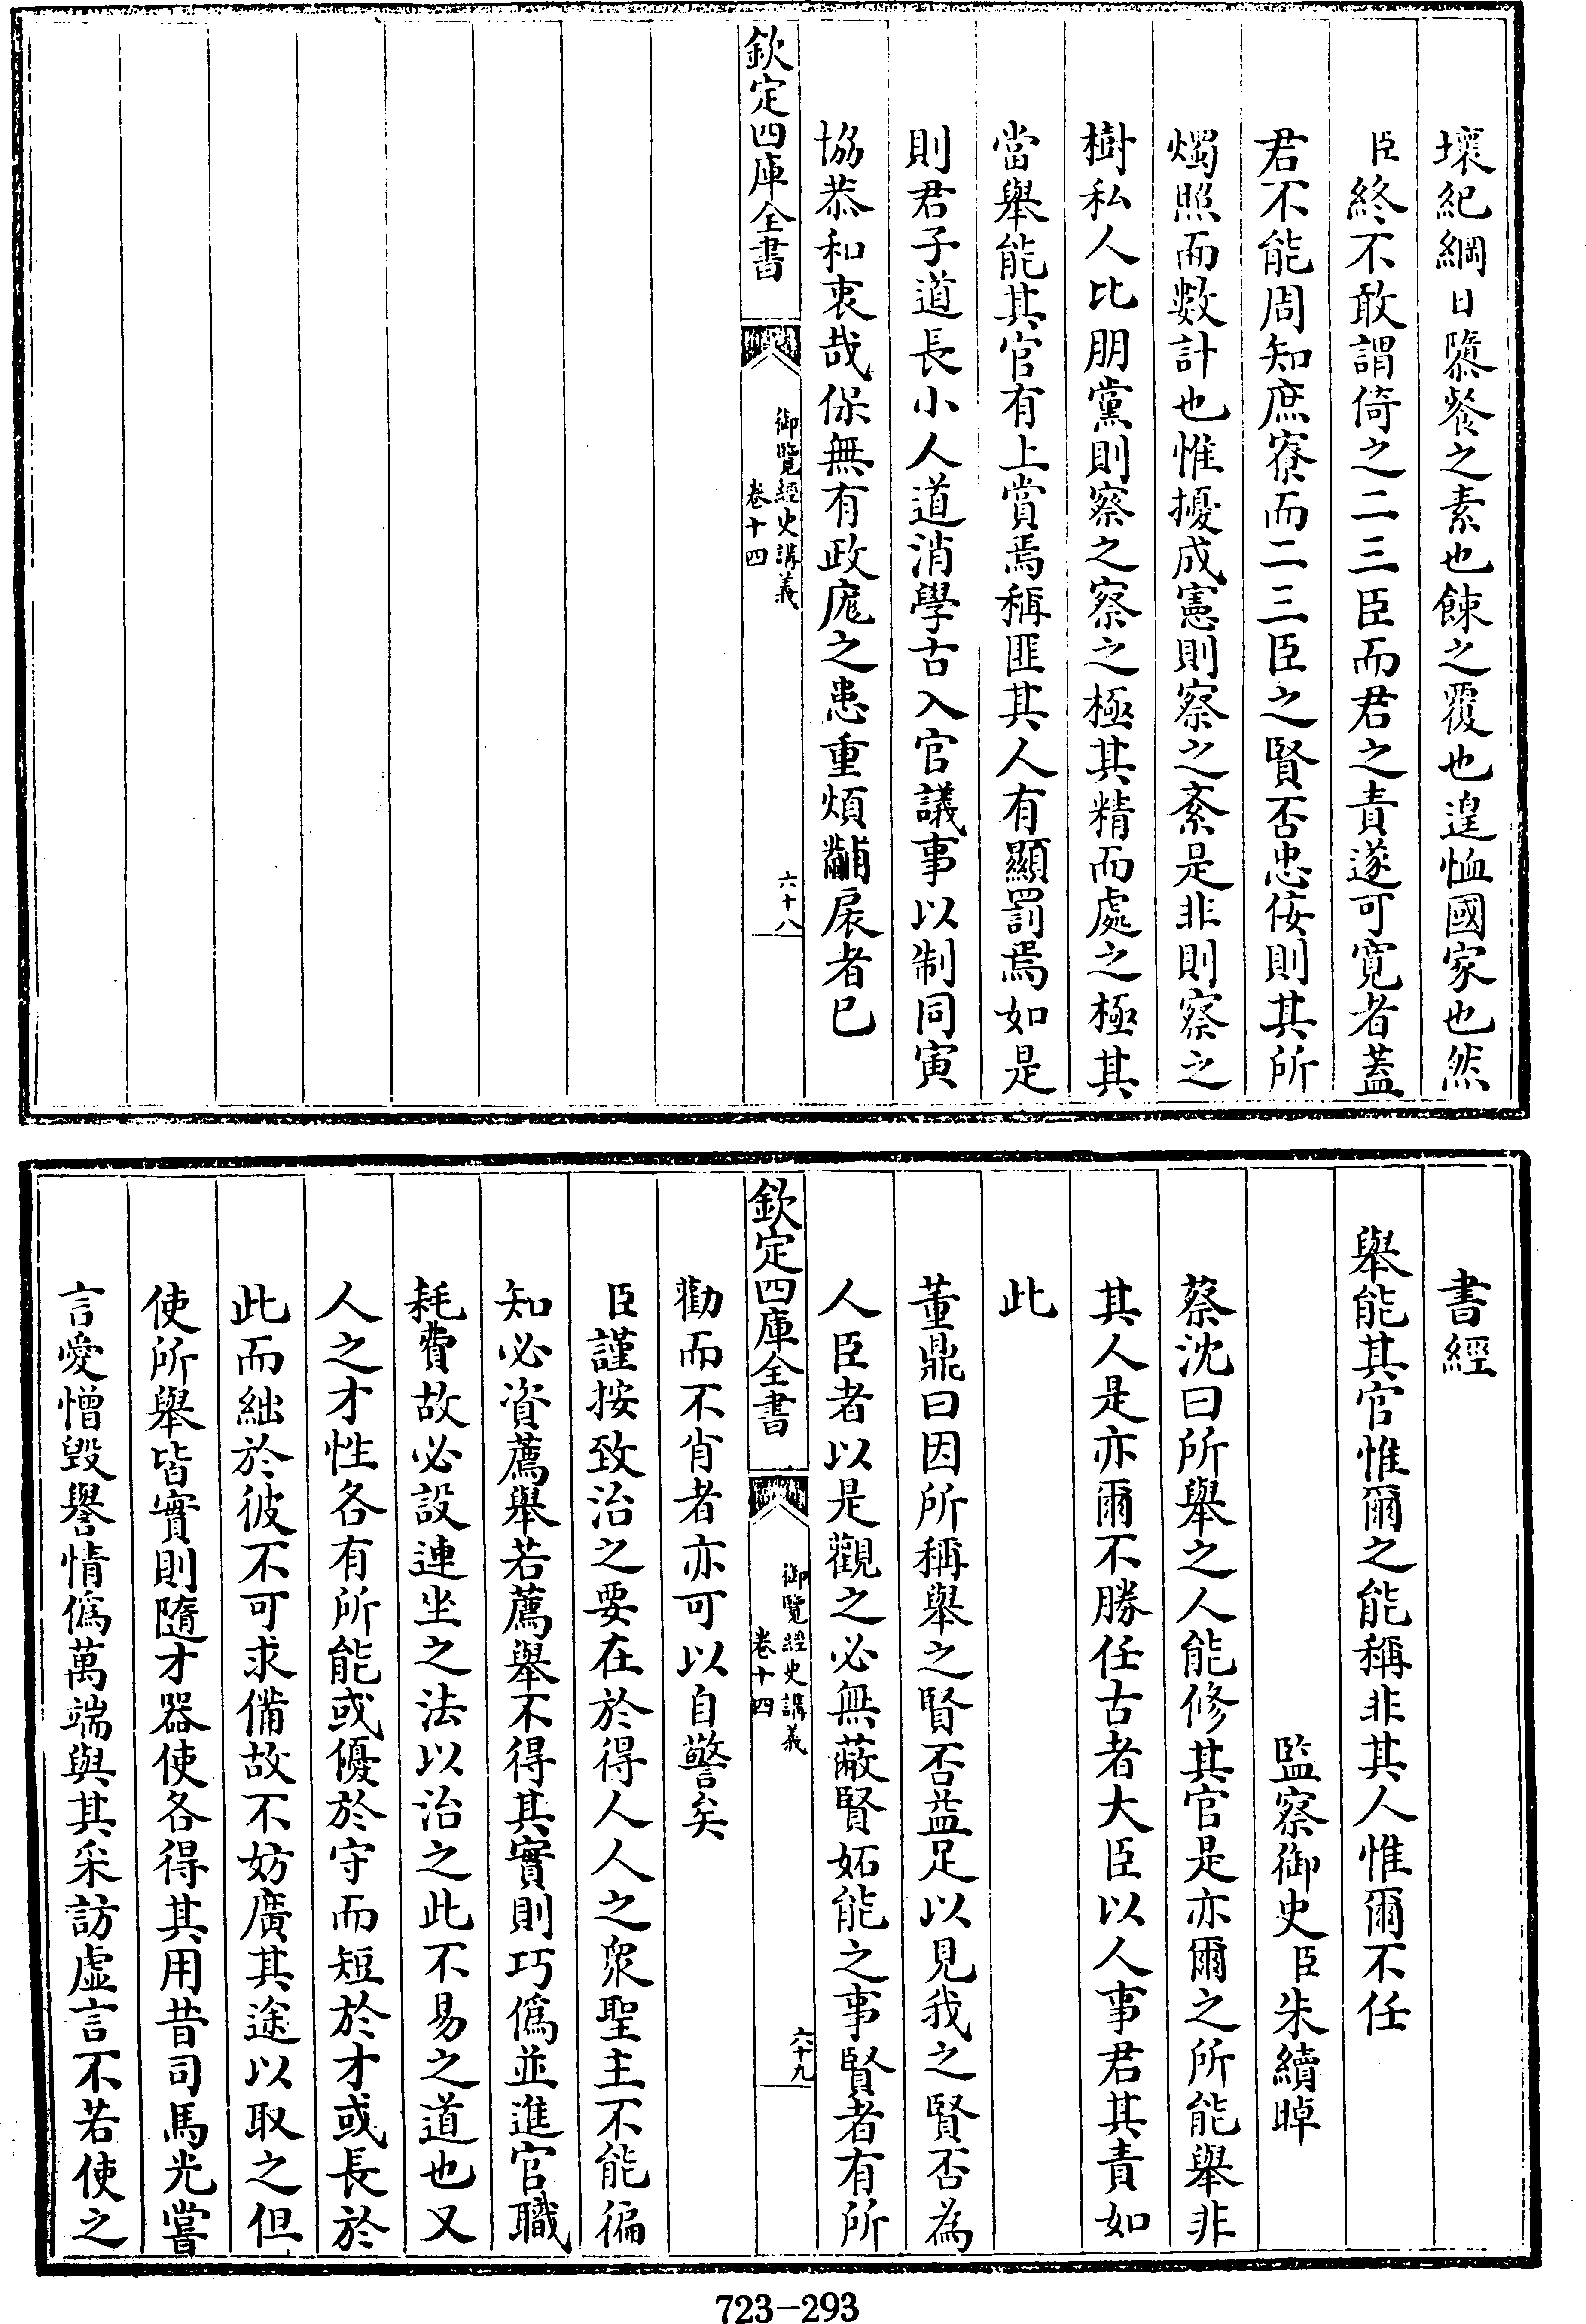 壞紀綱日隳餐之素也餗之覆也遑恤國家也然
臣終不敢謂倚之二三臣而君之責遂可寛者蓋
君不能周知庶寮而二三臣之賢否忠佞則其所
燭照而數計也惟擾成憲則察之紊是非則察之
樹私人比朋黨則察之察之極其精而處之極其
當舉能其官有上賞焉稱匪其人有顯罰焉如是
則君子道長小人道消學古入官議事以制同寅
協恭和衷哉保無有政庬之患重煩黼扆者已
欽定四庫全書
御覽經史講義
卷十四
六十八
書經
舉能其官惟爾之能稱非其人惟爾不任
監察御史臣朱續晫
蔡沈曰所舉之人能修其官是亦爾之所能舉非
其人是亦爾不勝任古者大臣以人事君其責如
此
董鼎曰因所稱舉之賢否益足以見我之賢否為
人臣者以是觀之必無蔽賢妬能之事賢者有所
欽定四庫全書
御覽經史講義
卷十四
六十九
勸而不肖者亦可以自警矣
臣謹按致治之要在於得人人之衆聖主不能徧
知必資薦舉若薦舉不得其實則巧僞並進官職
耗費故必設連坐之法以治之此不易之道也又
人之才性各有所能或優於守而短於才或長於
此而絀於彼不可求備故不妨廣其途以取之但
使所舉皆實則隨才器使各得其用昔司馬光嘗
言愛憎毀譽情僞萬端與其采訪虛言不若使之
723-293